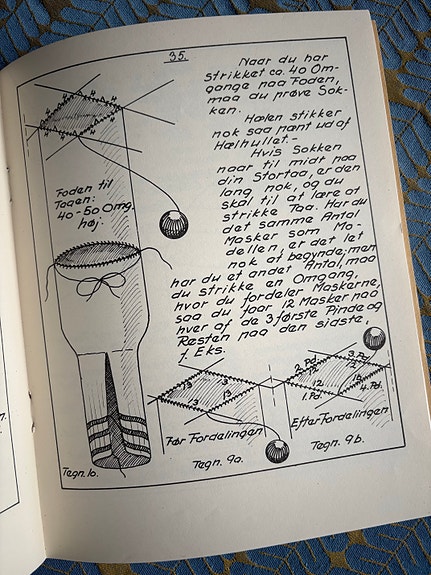 35.
Naar du har
strikket ca. 40 Om-
gange paa Foden,
maa du prøve Sok-
ken.
Hælen stikker
nok saa pænt ud af
Hælhullet.-
Hvis Sokken
naar til midt paa
din Stortaa, er den
lang nok, og du
skal til at lære at
strikke Taa. Har du
det samme Antal
Masker som Mo-
dellen, er det let
nok at begynde; men
har du et andet Antal, maa
du strikke en Omgang,
hvor du fordeler Maskerne,
saa du faar 12 Masker paa
hver af de 3 første Pinde og
Resten paa den sidste,
f. Eks.
Foden til
Taaen:
40-50 Omg.
høj.
Tegn. 1b.
13 13
13 13
Før Fordelingen
Tegn. 9a.
2. Pd. 3. Pd.
12 12
12 16
1. Pd. 4. Pd.
Efter Fordelingen
Tegn. 9b.